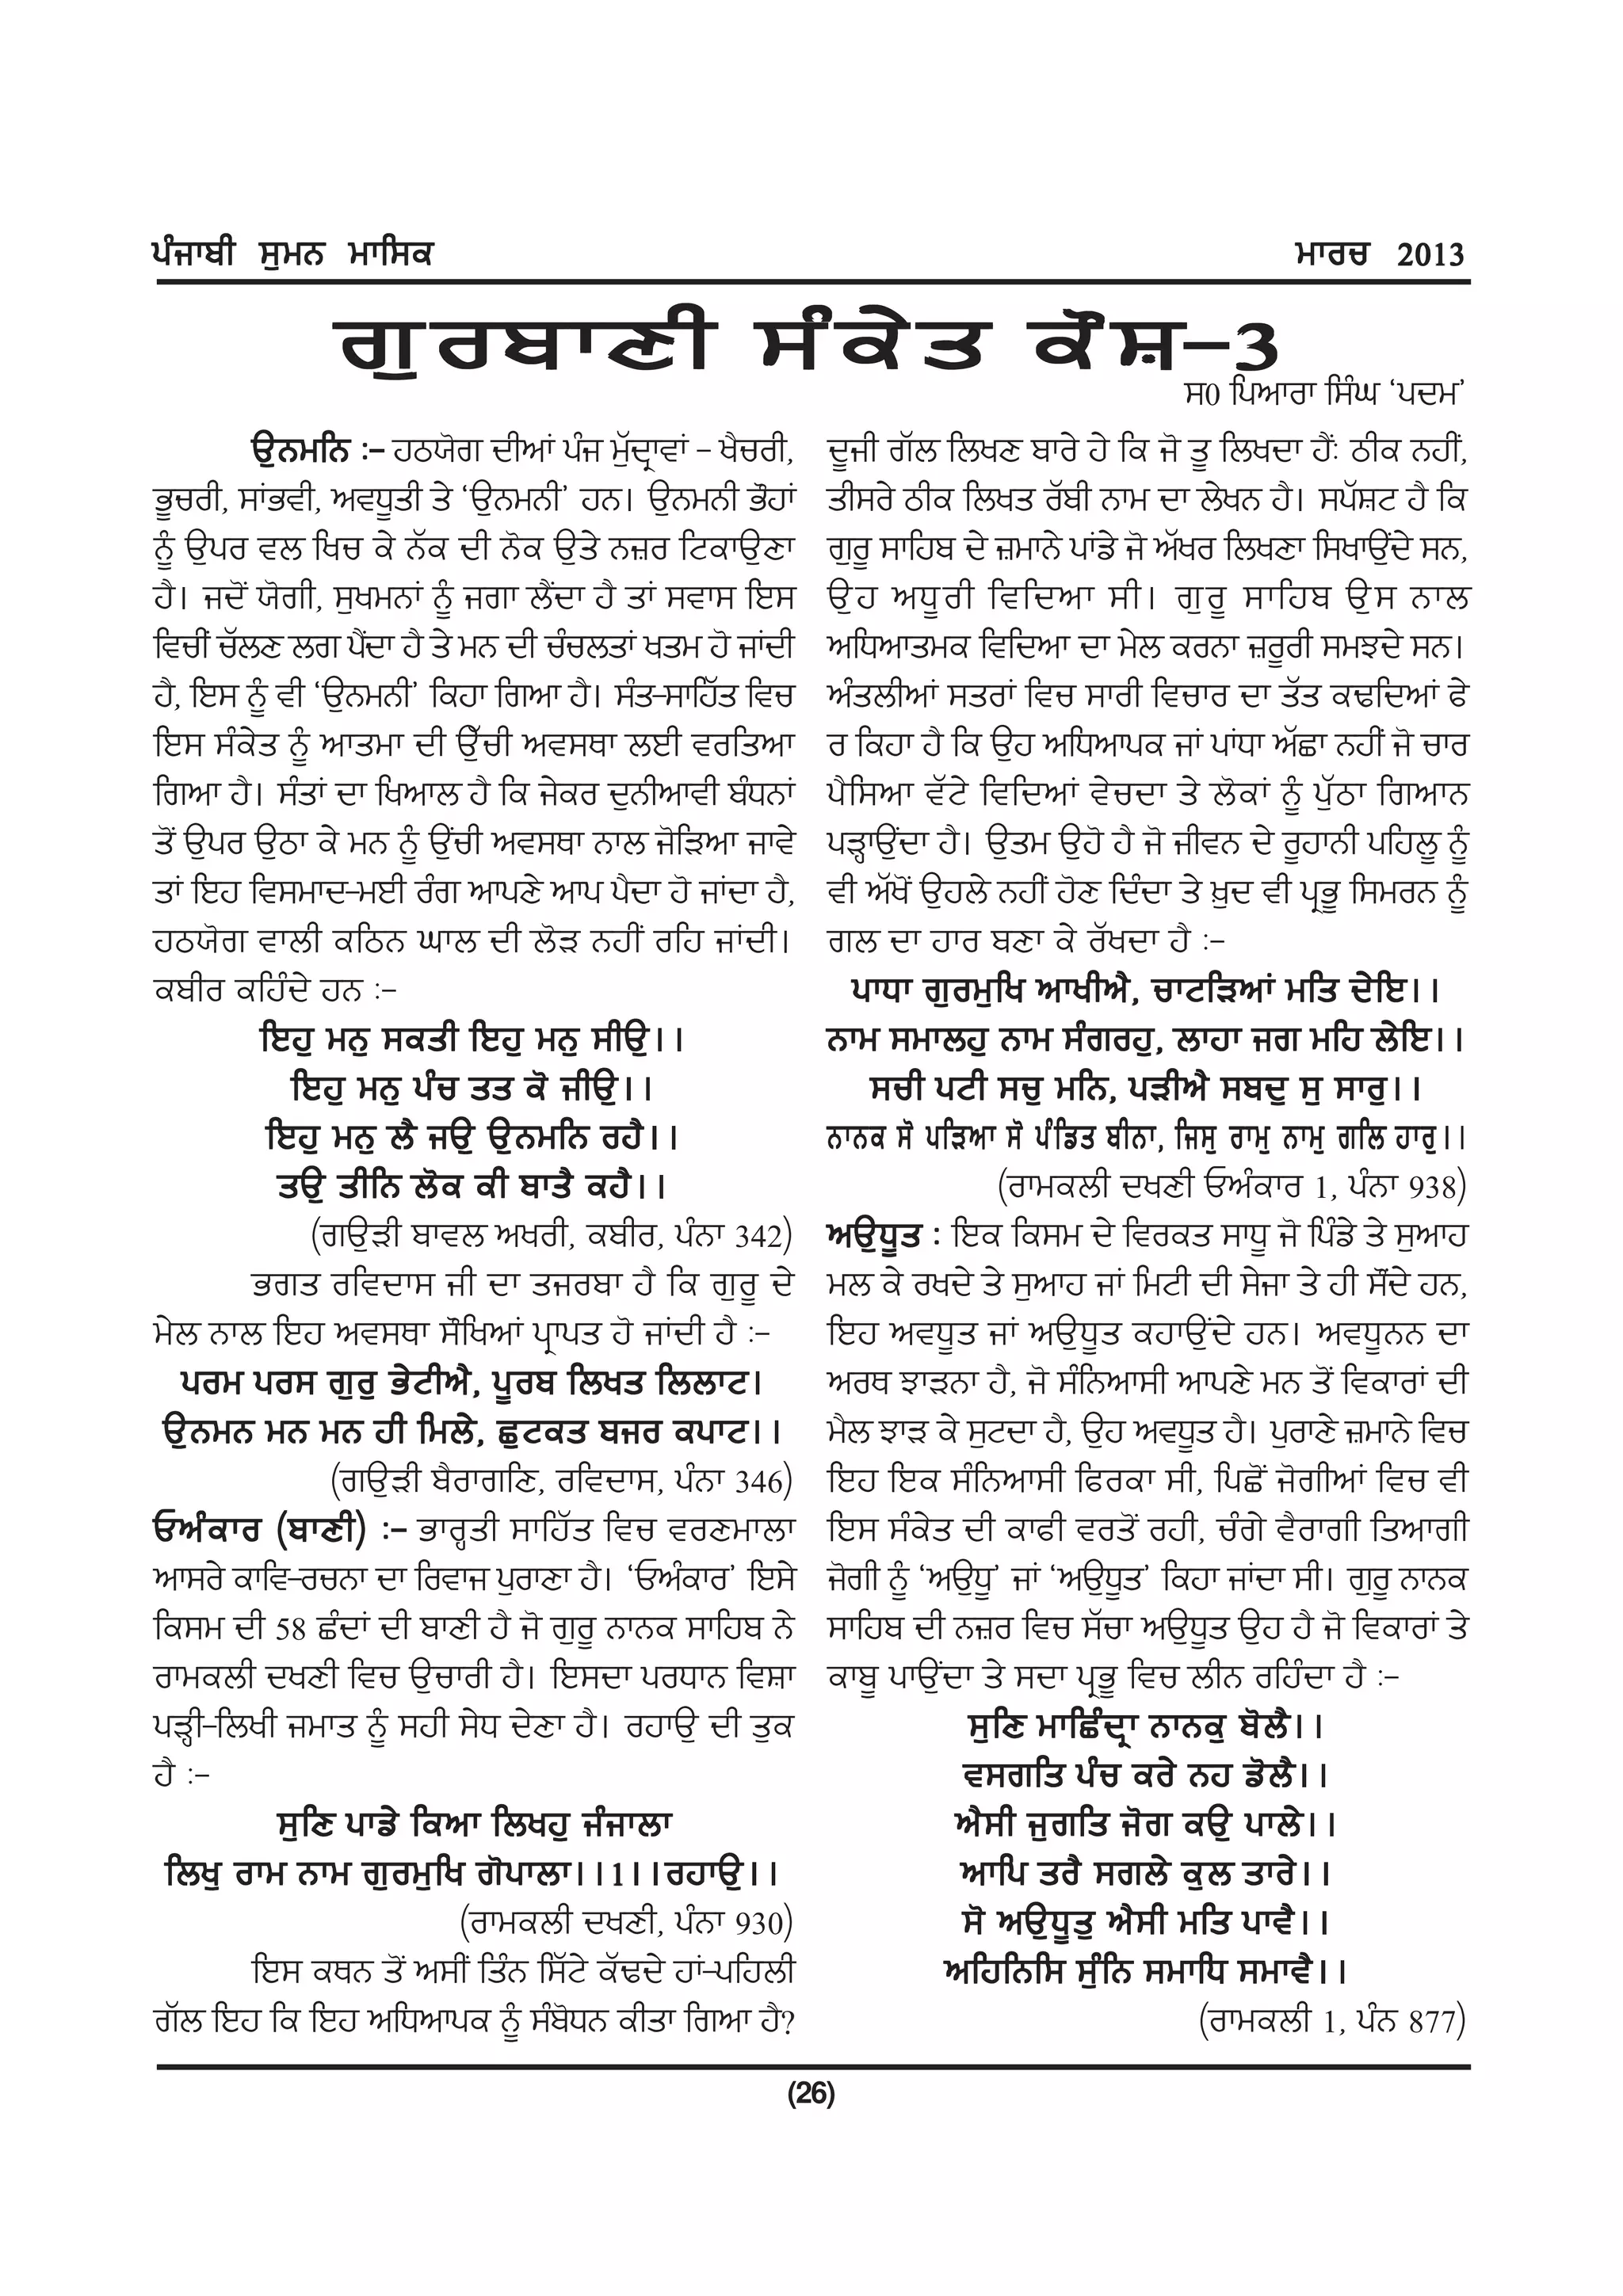 ਪੰਜਾਬੀ ਸੁਮਨ ਮਾਸਿਕ
ਮਾਰਚ 2013
ਗੁਰਬਾਣੀ ਸੰਕੇਤ ਕੌਸ਼-3
ਸ0 ਪਿਆਰਾ ਸਿੰਘ ‘ਪਦਮ’
ਉਨਮਨਿ :- ਹਠਯੋਗ ਦੀਆਂ ਪੰਜ ਮੁੱਦ੍ਰਾਵਾਂ - ਖੈਚਰੀ,
ਭੂਚਰੀ, ਸਾਂਭਵੀ, ਅਵਧੂਤੀ ਤੇ ‘ਉਨਮਨੀ’ ਹਨ। ਉਨਮਨੀ ਭੌਹਾਂ
ਨੂੰ ਉਪਰ ਵਲ ਖਿਚ ਕੇ ਨੱਕ ਦੀ ਨੋਕ ਉਤੇ ਨਜ਼ਰ ਟਿਕਾਉਣਾ
ਹੈ। ਜਦੋਂ ਯੋਗੀ, ਸੁਖਮਨਾਂ ਨੂੰ ਜਗਾ ਲੈਂਦਾ ਹੈ ਤਾਂ ਸਵਾਸ ਇਸ
ਵਿਚੀਂ ਚੱਲਣ ਲਗ ਪੈਂਦਾ ਹੈ ਤੇ ਮਨ ਦੀ ਚੰਚਲਤਾਂ ਖਤਮ ਹੋ ਜਾਂਦੀ
ਹੈ, ਇਸ ਨੂੰ ਵੀ ‘ਉਨਮਨੀ’ ਕਿਹਾ ਗਿਆ ਹੈ। ਸੰਤ-ਸਾਹਿੱਤ ਵਿਚ
ਇਸ ਸੰਕੇਤ ਨੂੰ ਆਤਮਾ ਦੀ ਉੱਚੀ ਅਵਸਥਾ ਲਈ ਵਰਤਿਆ
ਗਿਆ ਹੈ। ਸੰਤਾਂ ਦਾ ਖਿਆਲ ਹੈ ਕਿ ਜੇਕਰ ਦੁਨੀਆਵੀ ਬੰਧਨਾਂ
ਤੋਂ ਉਪਰ ਉਠਾ ਕੇ ਮਨ ਨੂੰ ਉਂਚੀ ਅਵਸਥਾ ਨਾਲ ਜੋੜਿਆ ਜਾਵੇ
ਤਾਂ ਇਹ ਵਿਸਮਾਦ-ਮਈ ਰੰਗ ਆਪਣੇ ਆਪ ਪੈਦਾ ਹੋ ਜਾਂਦਾ ਹੈ,
ਹਠਯੋਗ ਵਾਲੀ ਕਠਿਨ ਘਾਲ ਦੀ ਲੋੜ ਨਹੀਂ ਰਹਿ ਜਾਂਦੀ।
ਕਬੀਰ ਕਹਿੰਦੇ ਹਨ :-
ਇਹੁ ਮਨੁ ਸਕਤੀ ਇਹੁ ਮਨੁ ਸੀਉ।।
ਇਹੁ ਮਨੁ ਪੰਚ ਤਤ ਕੋ ਜੀਉ।।
ਇਹੁ ਮਨੁ ਲੈ ਜਉ ਉਨਮਨਿ ਰਹੈ।।
ਤਉ ਤੀਨਿ ਲੋਕ ਕੀ ਬਾਤੈ ਕਹੈ।।
(ਗਉੜੀ ਬਾਵਲ ਅਖਰੀ, ਕਬੀਰ, ਪੰਨਾ 342)
ਭਗਤ ਰਵਿਦਾਸ ਜੀ ਦਾ ਤਜਰਬਾ ਹੈ ਕਿ ਗੁਰੂ ਦੇ
ਮੇਲ ਨਾਲ ਇਹ ਅਵਸਥਾ ਸੌਖਿਆਂ ਪ੍ਰਾਪਤ ਹੋ ਜਾਂਦੀ ਹੈ :-
ਪਰਮ ਪਰਸ ਗੁਰੁ ਭੇਟੀਐ, ਪੂਰਬ ਲਿਖਤ ਲਿਲਾਟ।
ਉਨਮਨ ਮਨ ਮਨ ਹੀ ਮਿਲੇ, ਛੁਟਕਤ ਬਜਰ ਕਪਾਟ।।
(ਗਉੜੀ ਬੈਰਾਗਣਿ, ਰਵਿਦਾਸ, ਪੰਨਾ 346)
ਓਅੰਕਾਰ (ਬਾਣੀ) :- ਭਾਰ੍ਹਤੀ ਸਾਹਿੱਤ ਵਿਚ ਵਰਣਮਾਲਾ
ਆਸਰੇ ਕਾਵਿ-ਰਚਨਾ ਦਾ ਰਿਵਾਜ ਪੁਰਾਣਾ ਹੈ। ‘ਓਅੰਕਾਰ’ ਇਸੇ
ਕਿਸਮ ਦੀ 58 ਛੰਦਾਂ ਦੀ ਬਾਣੀ ਹੈ ਜੋ ਗੁਰੂ ਨਾਨਕ ਸਾਹਿਬ ਨੇ
ਰਾਮਕਲੀ ਦਖਣੀ ਵਿਚ ਉਚਾਰੀ ਹੈ। ਇਸਦਾ ਪਰਧਾਨ ਵਿਸ਼ਾ
ਪੜ੍ਹੀ-ਲਿਖੀ ਜਮਾਤ ਨੂੰ ਸਹੀ ਸੇਧ ਦੇਣਾ ਹੈ। ਰਹਾਉ ਦੀ ਤੁਕ
ਹੈ :-
ਸੁਣਿ ਪਾਡੇ ਕਿਆ ਲਿਖਹੁ ਜੰਜਾਲਾ
ਲਿਖੁ ਰਾਮ ਨਾਮ ਗੁਰਮੁਖਿ ਗੋਪਾਲਾ।।1।।ਰਹਾਉ।।
(ਰਾਮਕਲੀ ਦਖਣੀ, ਪੰਨਾ 930)
ਇਸ ਕਥਨ ਤੋਂ ਅਸੀਂ ਤਿੰਨ ਸਿੱਟੇ ਕੱਢਦੇ ਹਾਂ-ਪਹਿਲੀ
ਗੱਲ ਇਹ ਕਿ ਇਹ ਅਧਿਆਪਕ ਨੂੰ ਸੰਬੋਧਨ ਕੀਤਾ ਗਿਆ ਹੈ?
ਦੂਜੀ ਗੱਲ ਲਿਖਣ ਬਾਰੇ ਹੇ ਕਿ ਜੋ ਤੂ ਲਿਖਦਾ ਹੈਂ: ਠੀਕ ਨਹੀਂ,
ਤੀਸਰੇ ਠੀਕ ਲਿਖਤ ਰੱਬੀ ਨਾਮ ਦਾ ਲੇਖਨ ਹੈ। ਸਪੱਸ਼ਟ ਹੈ ਕਿ
ਗੁਰੂ ਸਾਹਿਬ ਦੇ ਜ਼ਮਾਨੇ ਪਾਂਡੇ ਜੋ ਅੱਖਰ ਲਿਖਣਾ ਸਿਖਾਉਂਦੇ ਸਨ,
ਉਹ ਅਧੂਰੀ ਵਿਦਿਆ ਸੀ। ਗੁਰੂ ਸਾਹਿਬ ਉਸ ਨਾਲ
ਅਧਿਆਤਮਕ ਵਿਦਿਆ ਦਾ ਮੇਲ ਕਰਨਾ ਜ਼ਰੂਰੀ ਸਮਝਦੇ ਸਨ।
ਅੰਤਲੀਆਂ ਸਤਰਾਂ ਵਿਚ ਸਾਰੀ ਵਿਚਾਰ ਦਾ ਤੱਤ ਕਢਦਿਆਂ ਫੇ
ਰ ਕਿਹਾ ਹੈ ਕਿ ਉਹ ਅਧਿਆਪਕ ਜਾਂ ਪਾਂਧਾ ਅੱਛਾ ਨਹੀਂ ਜੋ ਚਾਰ
ਪੈਸਿਆ ਵੱਟੇ ਵਿਦਿਆਂ ਵੇਚਦਾ ਤੇ ਲੋਕਾਂ ਨੂੰ ਪੁੱਠਾ ਗਿਆਨ
ਪੜ੍ਹਾਉਂਦਾ ਹੈ। ਉਤਮ ਉਹੋ ਹੈ ਜੋ ਜੀਵਨ ਦੇ ਰੂਹਾਨੀ ਪਹਿਲੂ ਨੂੰ
ਵੀ ਅੱਖੋਂ ਉਹਲੇ ਨਹੀਂ ਹੋਣ ਦਿੰਦਾ ਤੇ ਖ਼ੁਦ ਵੀ ਪ੍ਰਭੂ ਸਿਮਰਨ ਨੂੰ
ਗਲ ਦਾ ਹਾਰ ਬਣਾ ਕੇ ਰੱਖਦਾ ਹੈ :-
ਪਾਧਾ ਗੁਰਮੁਖਿ ਆਖੀਐ, ਚਾਟੜਿਆਂ ਮਤਿ ਦੇਇ।।
ਨਾਮ ਸਮਾਲਹੁ ਨਾਮ ਸੰਗਰਹੁ, ਲਾਹਾ ਜਗ ਮਹਿ ਲੇਇ।।
ਸਚੀ ਪਟੀ ਸਚੁ ਮਨਿ, ਪੜੀਐ ਸਬਦੁ ਸੁ ਸਾਰੁ।।
ਨਾਨਕ ਸੋ ਪੜਿਆ ਸੋ ਪੰਡਿਤ ਬੀਨਾ, ਜਿਸੁ ਰਾਮੁ ਨਾਮੁ ਗਲਿ ਹਾਰੁ।।
(ਰਾਮਕਲੀ ਦਖਣੀ ਓਅੰਕਾਰ 1, ਪੰਨਾ 938)
ਅਉਧੂਤ : ਇਕ ਕਿਸਮ ਦੇ ਵਿਰਕਤ ਸਾਧੂ ਜੋ ਪਿੰਡੇ ਤੇ ਸੁਆਹ
ਮਲ ਕੇ ਰਖਦੇ ਤੇ ਸੁਆਹ ਜਾਂ ਮਿਟੀ ਦੀ ਸੇਜਾ ਤੇ ਹੀ ਸੌਂਦੇ ਹਨ,
ਇਹ ਅਵਧੂਤ ਜਾਂ ਅਉਧੂਤ ਕਹਾਉਂਦੇ ਹਨ। ਅਵਧੂਨਨ ਦਾ
ਅਰਥ ਝਾੜਨਾ ਹੈ, ਜੋ ਸੰਨਿਆਸੀ ਆਪਣੇ ਮਨ ਤੋਂ ਵਿਕਾਰਾਂ ਦੀ
ਮੈਲ ਝਾੜ ਕੇ ਸੁਟਦਾ ਹੈ, ਉਹ ਅਵਧੂਤ ਹੈ। ਪੁਰਾਣੇ ਜ਼ਮਾਨੇ ਵਿਚ
ਇਹ ਇਕ ਸੰਨਿਆਸੀ ਫਿਰਕਾ ਸੀ, ਪਿਛੋਂ ਜੋਗੀਆਂ ਵਿਚ ਵੀ
ਇਸ ਸੰਕੇਤ ਦੀ ਕਾਫੀ ਵਰਤੋਂ ਰਹੀ, ਚੰਗੇ ਵੈਰਾਗੀ ਤਿਆਗੀ
ਜੋਗੀ ਨੂੰ ‘ਅਉਧੂ’ ਜਾਂ ‘ਅਉਧੂਤ’ ਕਿਹਾ ਜਾਂਦਾ ਸੀ। ਗੁਰੂ ਨਾਨਕ
ਸਾਹਿਬ ਦੀ ਨਜ਼ਰ ਵਿਚ ਸੱਚਾ ਅਉਧੂਤ ਉਹ ਹੈ ਜੋ ਵਿਕਾਰਾਂ ਤੇ
ਕਾਬੂ ਪਾਉਂਦਾ ਤੇ ਸਦਾ ਪ੍ਰਭੂ ਵਿਚ ਲੀਨ ਰਹਿੰਦਾ ਹੈ :-
ਸੁਣਿ ਮਾਛਿੰਦ੍ਰਾ ਨਾਨਕੁ ਬੋਲੈ।।
ਵਸਗਤਿ ਪੰਚ ਕਰੇ ਨਹ ਡੋਲੈ।।
ਐਸੀ ਜੁਗਤਿ ਜੋਗ ਕਉ ਪਾਲੇ।।
ਆਪਿ ਤਰੈ ਸਗਲੇ ਕੁਲ ਤਾਰੇ।।
ਸੋ ਅਉਧੂਤੁ ਐਸੀ ਮਤਿ ਪਾਵੈ।।
ਅਹਿਨਿਸਿ ਸੁੰਨਿ ਸਮਾਧਿ ਸਮਾਵੈ।।
(ਰਾਮਕਲੀ 1, ਪੰਨ 877)
(26)